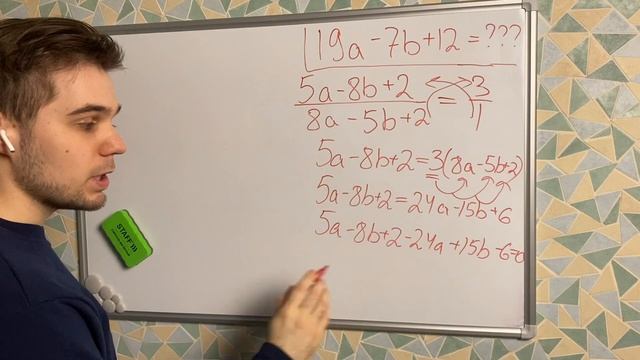 19a - 7b + 12 = ???
5a - 8b + 2 = 3
8a - 5b + 2 1
5a - 8b + 2 = 3(8a - 5b + 2)
5a - 8b + 2 = 24a - 15b + 6
5a - 8b + 2 - 24a + 15b - 6 = 0
STAFF